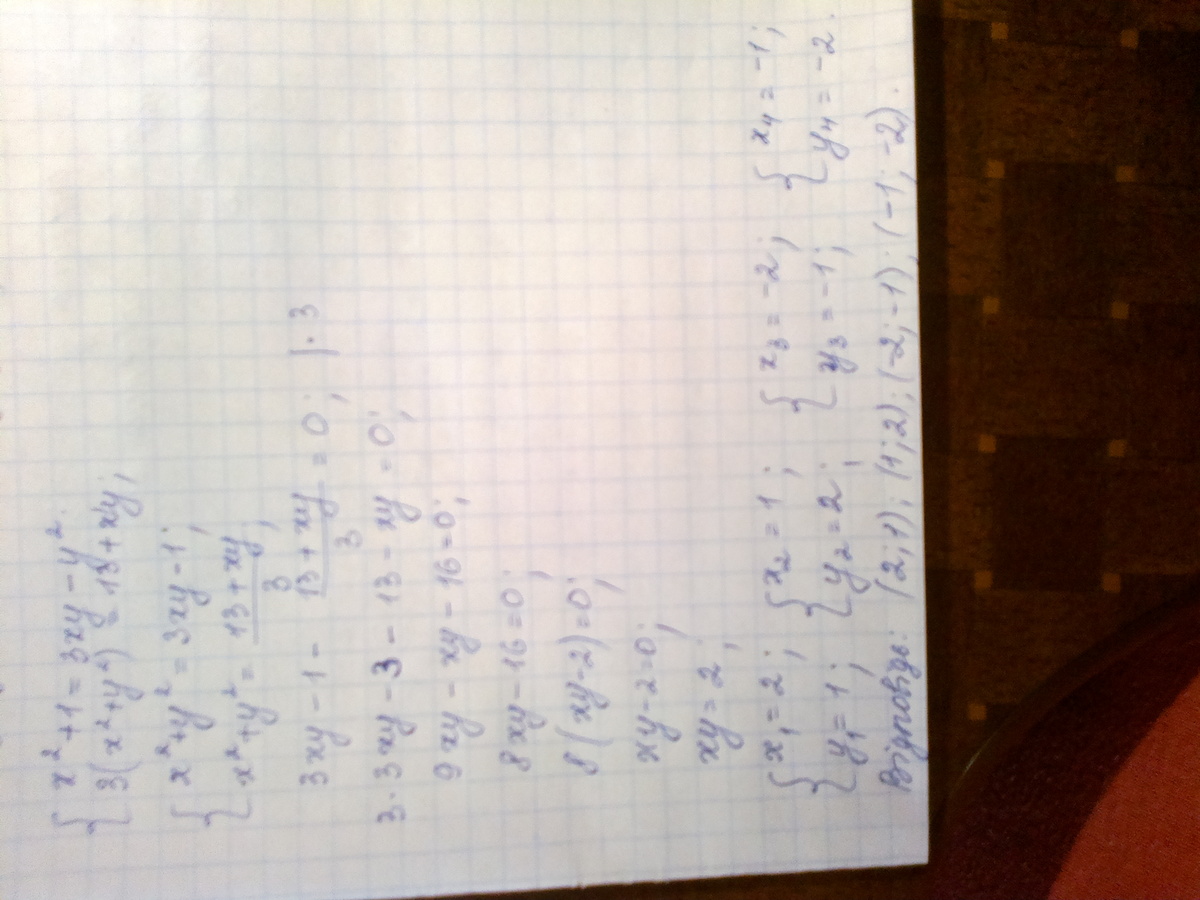 { x² + 1 = 3xy - y².
{ 3(x² + y²) = 13 + xy;
{ x² + y² = 3xy - 1;
{ x² + y² = (13 + xy)/3;
3xy - 1 - (13 + xy)/3 = 0; | · 3
3 · 3xy - 3 - 13 - xy = 0;
9xy - xy - 16 = 0;
8xy - 16 = 0;
8(xy - 2) = 0;
xy - 2 = 0;
xy = 2;
{ x₁ = 2; { x₂ = 1; { x₃ = -2; { x₄ = -1;
{ y₁ = 1; { y₂ = 2; { y₃ = -1; { y₄ = -2.
Відповідь: (2; 1); (1; 2); (-2; -1); (-1; -2).